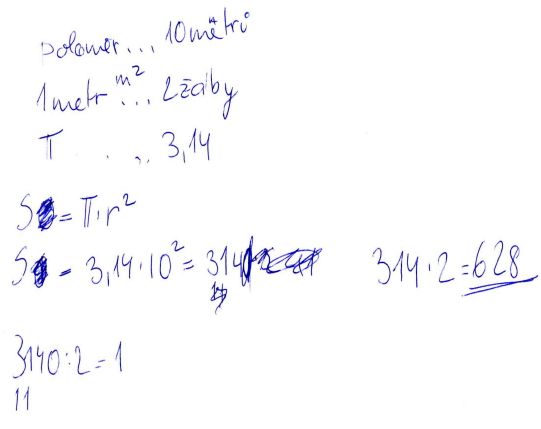 poloměr... 10 metrů
1 metr m² ... 2 žáby
π ... 3,14
S = π·r²
S = 3,14·10² = 314
314·2=628
3140:2=1
11